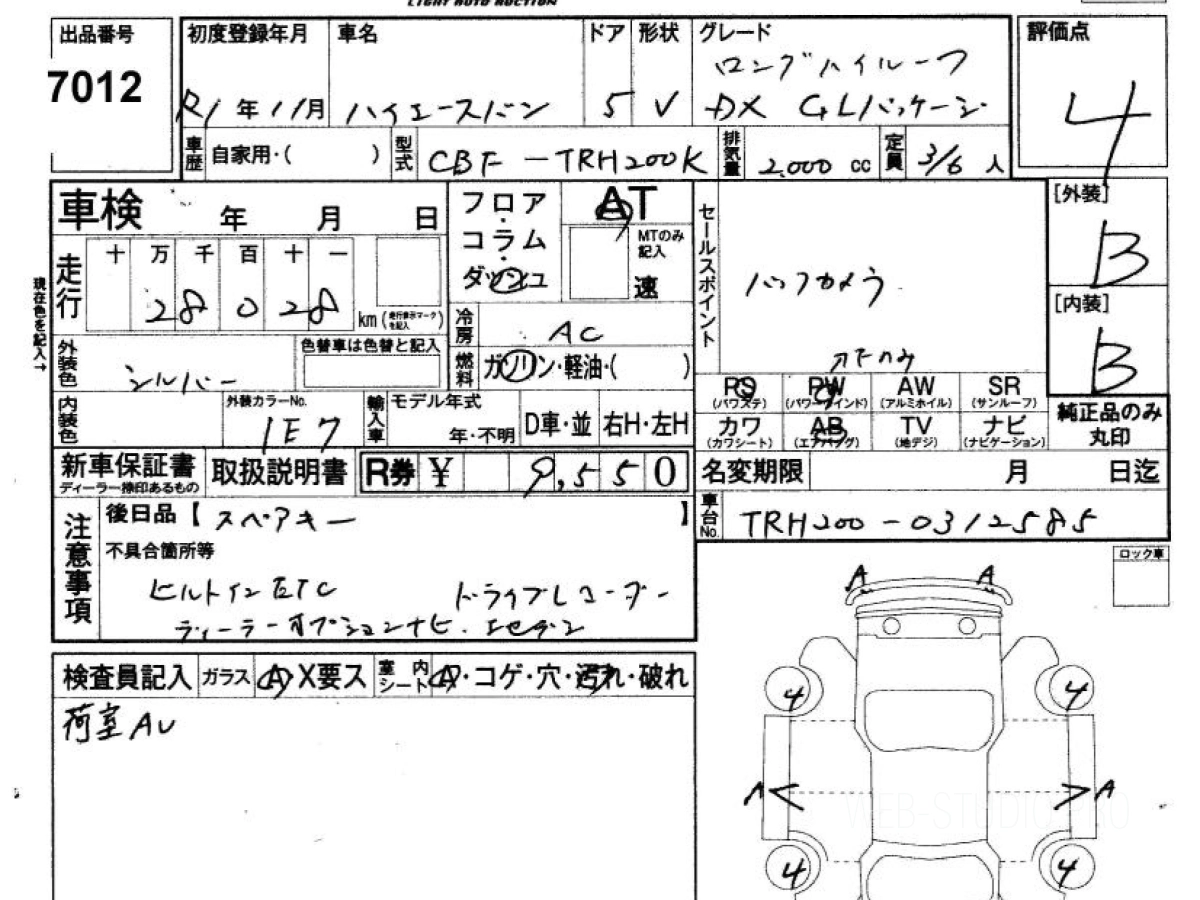 LIGHT AUTO AUCTION
出品番号 初度登録年月 車名 ドア 形状 グレード 評価点
7012 R1年11月 ハイエースバン 5 V ロングハイルーフ
DX GLパッケージ 4
車歴 自家用・( ) 型式 CBF-TRH200K 排気量 2.000 cc 定員 3/6 人
車検 年 月 日 フロア・コラム・ダッシュ AT
MTのみ記入 速
走行 十 万 千 百 十 一
28 0 28 km (走行表示マークを記入)
現在色を記入→
冷房 AC
燃料 ガソリン・軽油・( )
セールスポイント バックカメラ
オドのみ
[外装] B
[内装] B
外装色 シルバー 色替車は色替と記入
PS (パワステ) PW (パワーウインド) AW (アルミホイル) SR (サンルーフ)
カワ (カワシート) AB (エアバッグ) TV (地デジ) ナビ (ナビゲーション)
純正品のみ丸印
内装色 外装カラーNo. 1E7 輸入車 モデル年式 年・不明 D車・並 右H・左H
新車保証書 ディーラー捺印あるもの 取扱説明書 R券 ¥ 9,550 名変期限 月 日迄
注意事項 後日品【 スペアキー 】 車台No. TRH200-0312585
不具合箇所等
ビルトインETC ドライブレコーダー
ディーラーオプションナビ.
ロック車
検査員記入 ガラス A X要ス 室内シート A・コゲ・穴・汚れ・破れ
荷室AU
A A
4 4
A A
4 4
WEB-STUDIO PRO